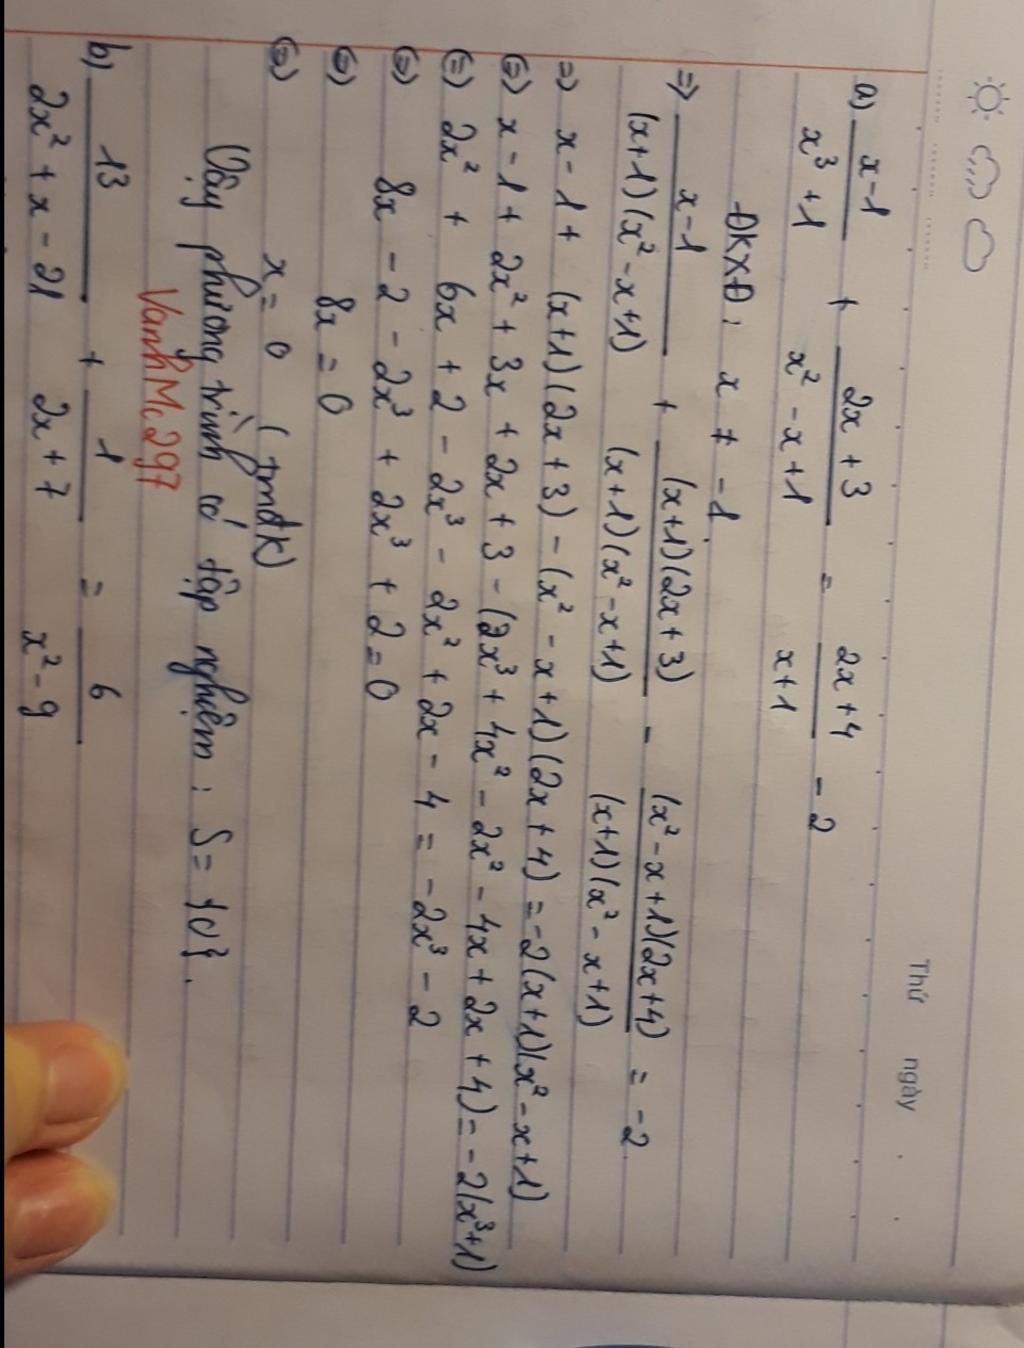 Thứ ngày
a) x-1 / x³+1 + 2x+3 / x²-x+1 = 2x+4 / x+1 - 2
ĐKXĐ: x ≠ -1
=> x-1 / (x+1)(x²-x+1) + (x+1)(2x+3) / (x+1)(x²-x+1) - (x²-x+1)(2x+4) / (x+1)(x²-x+1) = -2
=> x-1+ (x+1)(2x+3) - (x²-x+1)(2x+4) = -2(x+1)(x²-x+1)
⇔ x-1+ 2x²+3x+2x+3-(2x³+4x²-2x²-4x+2x+4) = -2(x³+1)
⇔ 2x² + 6x + 2 - 2x³ - 2x² + 2x - 4 = -2x³ - 2
⇔ 8x - 2 - 2x³ + 2x³ + 2 = 0
⇔ 8x = 0
⇔ x = 0 (tmđk)
Vậy phương trình có tập nghiệm : S = {0}.
VanhMc297
b) 13 / 2x²+x-21 + 1 / 2x+7 = 6 / x²-9